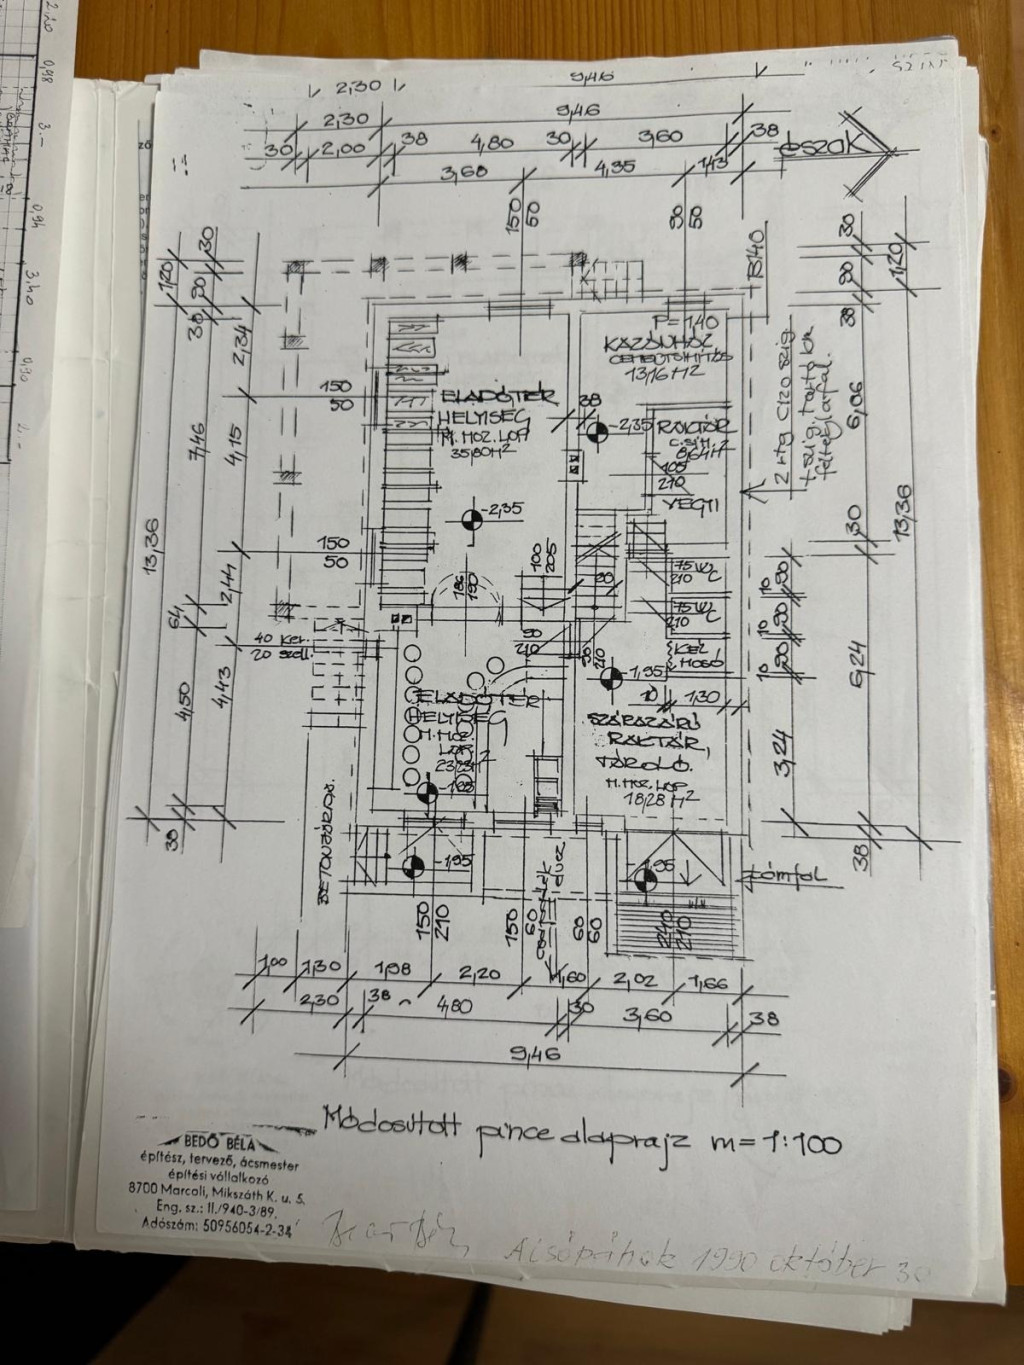 9,46
2,30
9,46
2,30
30 2,00 38 4,80 30 3,60 38
észak
3,60 4,35 1,43
150
50
90
50
1,20 90 30
30 90 1,20
B140
38 2,34
38
P=1,40
KAZÁNHÁZ
13,16 M2
150
50
ELADÓTÉR
HELYISÉG
M.MOZ.LAP
35,80 M2
38
-2,35
RAKTÁR
C.SIM.
8,64 M2
105
210
VEGYI
2 rtg
szig.
feltételfal.
6,06
7,46 4,15
-2,35
13,36
13,36
30
150
50
100
205
186
190
90
75 WC
210
10 90
2,44
64
75 WC
210
10 90
40 ker.
20 szell.
90
210
90
210
KÉZ
MOSÓ
10 90
6,24
-1,95
10 1,30
4,50 4,43
ELADÓTÉR
HELYISÉG
M.MOZ.
LAP
SZÁRAZÁRÚ
RAKTÁR,
TÁROLÓ.
M.MOZ.LAP
18,28 M2
3,24
BETONJÁRDA
-1,95
38
-1,95
-1,95
38
tömfal
csatornák
150
210
150
60
60
60
240
210
1,00 1,30 1,98 2,20 1,60 2,02 1,66
2,30 38 4,80 30 3,60 38
9,46
Módosított pince alaprajz m=1:100
BEDŐ BÉLA
építész, tervező, ácsmester
építési vállalkozó
8700 Marcali, Mikszáth K. u. 5.
Eng. sz.: II./940-3/89.
Adószám: 50956054-2-34
Alsópáhok 1990 október 30